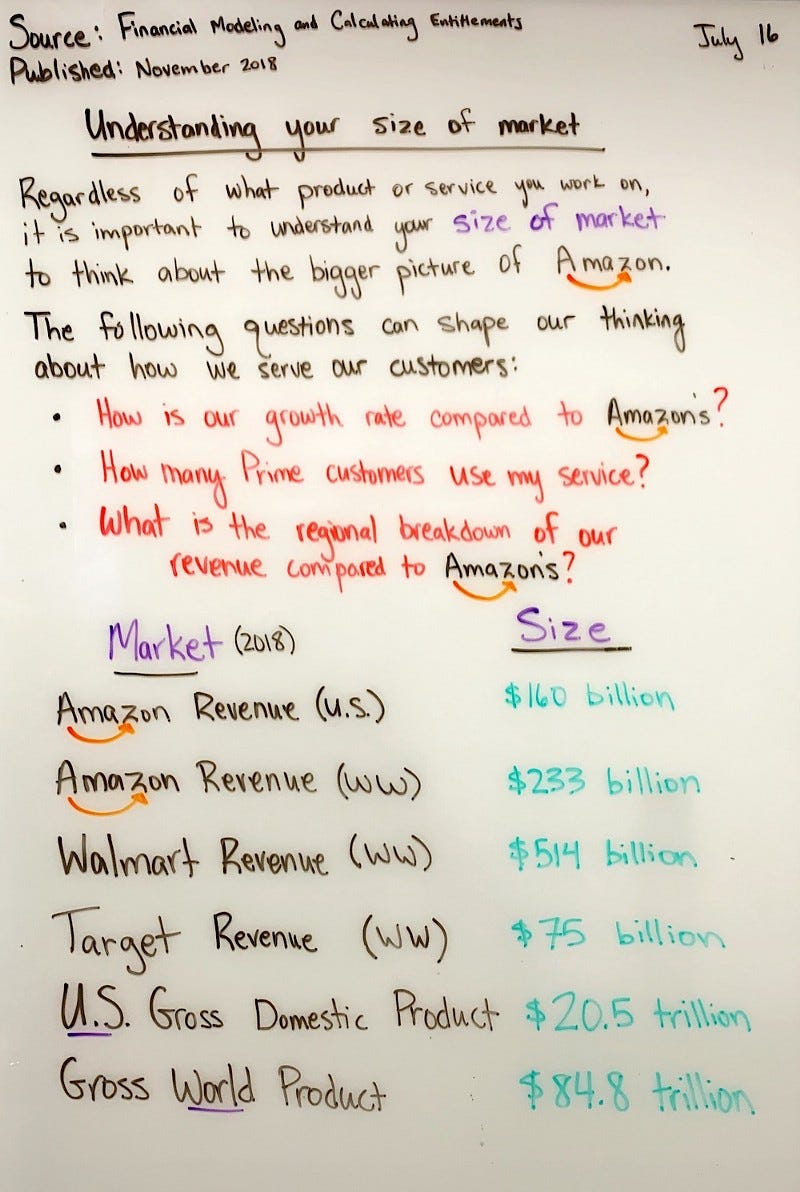 Source: Financial Modeling and Calculating Entitlements
July 16
Published: November 2018
Understanding your size of market
Regardless of what product or service you work on,
it is important to understand your size of market
to think about the bigger picture of Amazon.
The following questions can shape our thinking
about how we serve our customers:
• How is our growth rate compared to Amazon's?
• How many Prime customers use my service?
• What is the regional breakdown of our
revenue compared to Amazon's?
Market (2018) Size
Amazon Revenue (U.S.) $160 billion
Amazon Revenue (WW) $233 billion
Walmart Revenue (WW) $514 billion
Target Revenue (WW) $75 billion
U.S. Gross Domestic Product $20.5 trillion
Gross World Product $84.8 trillion